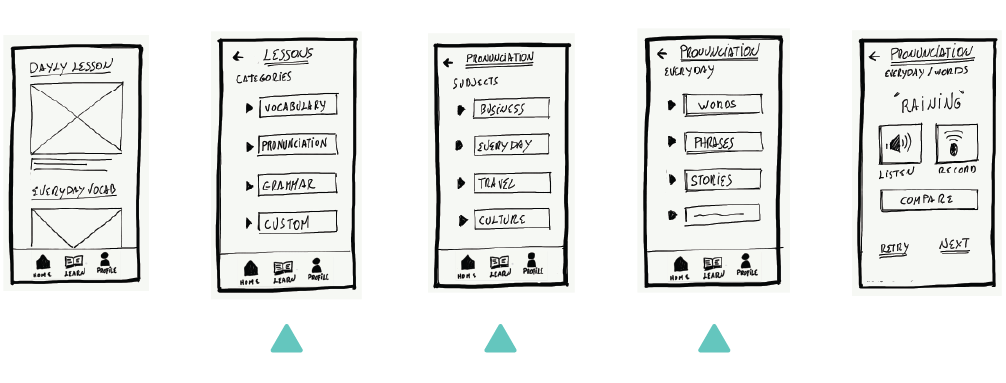 DAYLY LESSON
EVERYDAY VOCAB
HOME LEARN PROFILE
LESSONS
CATEGORIES
VOCABULARY
PRONUNCIATION
GRAMMAR
CUSTOM
HOME LEARN PROFILE
PRONUNCIATION
SUBJECTS
BUSINESS
EVERYDAY
TRAVEL
CULTURE
HOME LEARN PROFILE
PRONUNCIATION
EVERYDAY
WORDS
PHRASES
STORIES
HOME LEARN PROFILE
PRONUNCIATION
EVERYDAY/WORDS
"RAINING"
LISTEN RECORD
COMPARE
RETRY NEXT